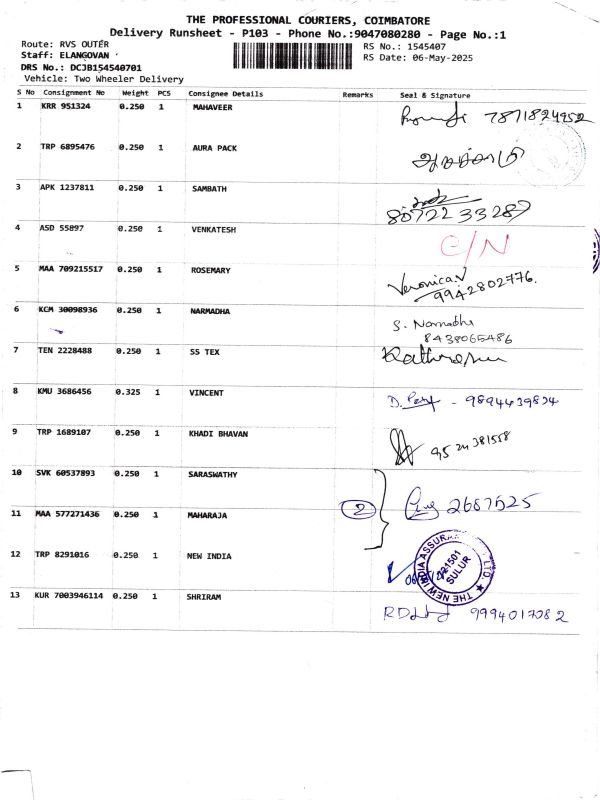 THE PROFESSIONAL COURIERS, COIMBATORE
Delivery Runsheet - P103 - Phone No.:9047080280 - Page No.:1
Route: RVS OUTER
Staff: ELANGOVAN
DRS No.: DCJB154540701
Vehicle: Two Wheeler Delivery
RS No.: 1545407
RS Date: 06-May-2025
S No Consignment No Weight PCS Consignee Details Remarks Seal & Signature
1 KRR 951324 0.250 1 MAHAVEER 7871824952
2 TRP 6895476 0.250 1 AURA PACK
3 APK 1237811 0.250 1 SAMBATH
8072233287
4 ASD 55897 0.250 1 VENKATESH C/N
5 MAA 709215517 0.250 1 ROSEMARY Veronica.V
9942802776.
6 KCM 30098936 0.250 1 NARMADHA S. Narmadha
8438065486
7 TEN 2228488 0.250 1 SS TEX
8 KMU 3686456 0.325 1 VINCENT D. - 9894439834
9 TRP 1689107 0.250 1 KHADI BHAVAN
10 SVK 60537893 0.250 1 SARASWATHY
2 2687525
11 MAA 577271436 0.250 1 MAHARAJA
12 TRP 8291016 0.250 1 NEW INDIA
THE NEW INDIA ASSURANCE LTD.
SULUR
13 KUR 7003946114 0.250 1 SHRIRAM
9994017082